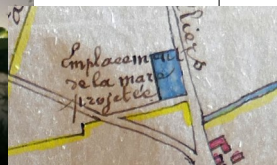 Emplacement
de la mare
projetée
liers